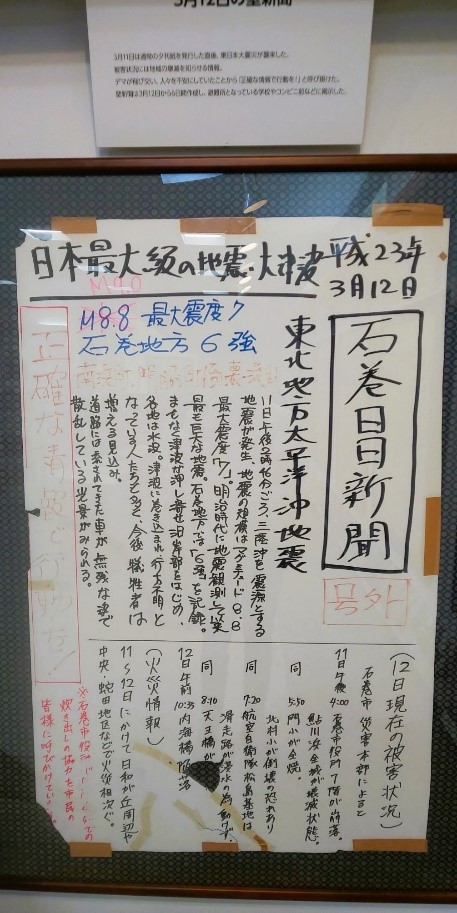 3月12日の壁新聞
3月11日は通常の夕刊紙を発行した直後、東日本大震災が襲来した。
被害状況には地域の壊滅を知らせる情報。
デマが飛び交い、人々を不安にしていたことから「正確な情報で行動を！」と呼び掛けた。
壁新聞は3月12日から6日間作成し、避難所となっている学校やコンビニ前などに掲示した。
日本最大級の地震・大津波
平成23年
3月12日
石巻日日新聞
号外
M9.0
M8.8 最大震度7
石巻地方6強
東北地方太平洋沖地震
11日午後2時46分ごろ、三陸沖を震源とする
地震が発生、地震の規模はマグニチュード8.8
最大震度「7」。明治時代に地震観測して以来
最も巨大な地震。石巻地方では「6強」を記録。
まもなく津波が押し寄せ沿岸部をはじめ、
各地は水没。津波に巻き込まれ行方不明と
なっている人たちも多く今後犠牲者は
増える見込み。
道路には流されてきた車が無残な姿で
散乱している光景がみられる。
正確な情報で行動を！
(12日現在の被害状況)
石巻市災害本部によると
11日午後4:00 石巻市役所7階が崩落。
鮎川浜全域が壊滅状態。
同 5:50 門小が全焼。
北村小が倒壊の恐れあり
同 7:20 航空自衛隊松島基地は
滑走路が浸水の為動けず。
同 8:10 天王橋が
12日午前10:35 内海橋 陥落
(火災情報)
11〜12日にかけて日和が丘周辺や
中央・蛇田地区などで火災相次ぐ。
※石巻市役所 での
炊き出しの協力を市民の
皆様に呼びかけてい